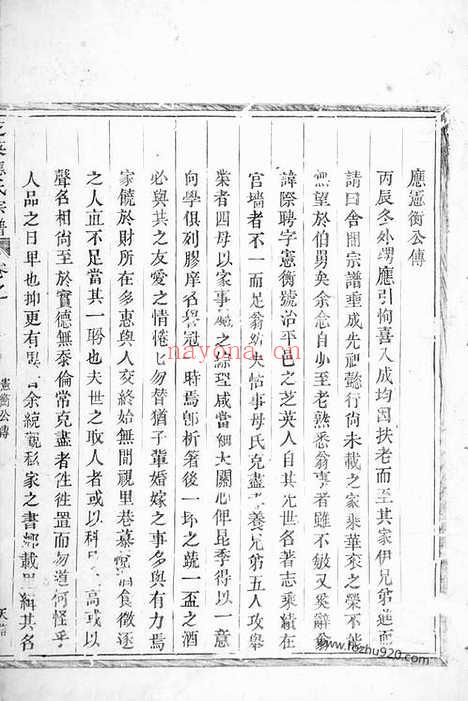 應憲衡公傳
丙辰冬外甥應引恂喜入成均因扶老而至其家伊兄弟進而
請曰舍間宗譜垂成先祖懿行尚未載之家乘華袞之榮不能
無望於伯舅矣余念自少至老熟悉翁事者雖不敏又奚辭翁
諱際聘字憲衡號治平邑之芝英人自其先世名著志乘績在
宮墻者不一而足翁幼失怙事母氏克盡孝養兄弟五人攻舉
業者四母以家事 之綜理咸當細大關心俾昆季得以一意
向學俱列膠庠名譽冠一時焉卽析箸後一坏之蔬一盃之酒
必與共之友愛之情惓惓勿替猶子輩婚嫁之事多與有力焉
家饒於財所在多惠與人交終始無間視里巷慕 食徵逐
之人直不足當其一盼也夫世之取人者或以科 高或以
聲名相尚至於實德無忝倫常克盡者往往置而勿道何怪乎
人品之日卑也抑更有異 余統觀私家之書鄉載 緝其名
芝英應氏宗譜 卷之一
憲衡公傳
nayona.cn
www.fozhu920.com